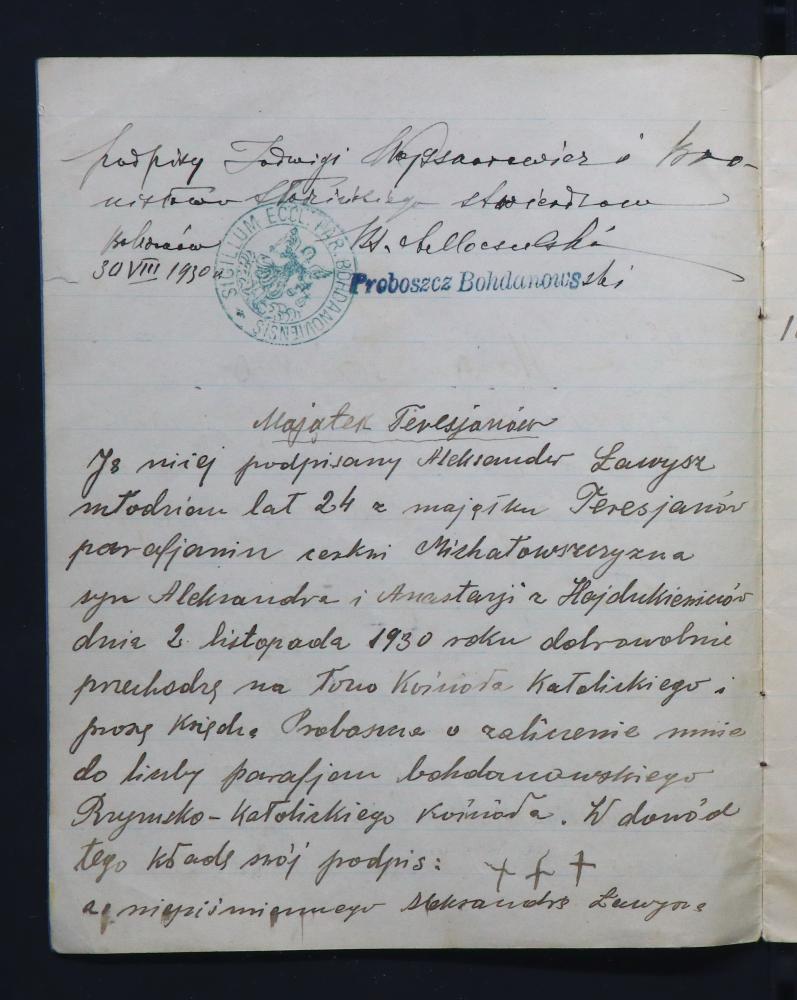 podpisy Jadwigi i Bro-
nisława stwierdzam
30 VIII 1930 r.
SIGILLUM ECCL. PAR. BOHDANOVIENSIS
Proboszcz Bohdanowski
Majątek Teresjanów
Ja niżej podpisany Aleksander Ławysz
młodzian lat 24 z majątku Teresjanów
parafjanin cerkwi Michałowszczyzna
syn Aleksandra i Anastazji z Hajdukiewiczów
dnia 2 listopada 1930 roku dobrowolnie
przechodzę na łono Kościoła Katolickiego i
proszę Księdza Proboszcza o zaliczenie mnie
do liczby parafjan bohdanowskiego
Rzymsko-Katolickiego Kościoła. W dowód
tego kładę swój podpis: + + +
za niepiśmiennego Aleksandra Ławysza